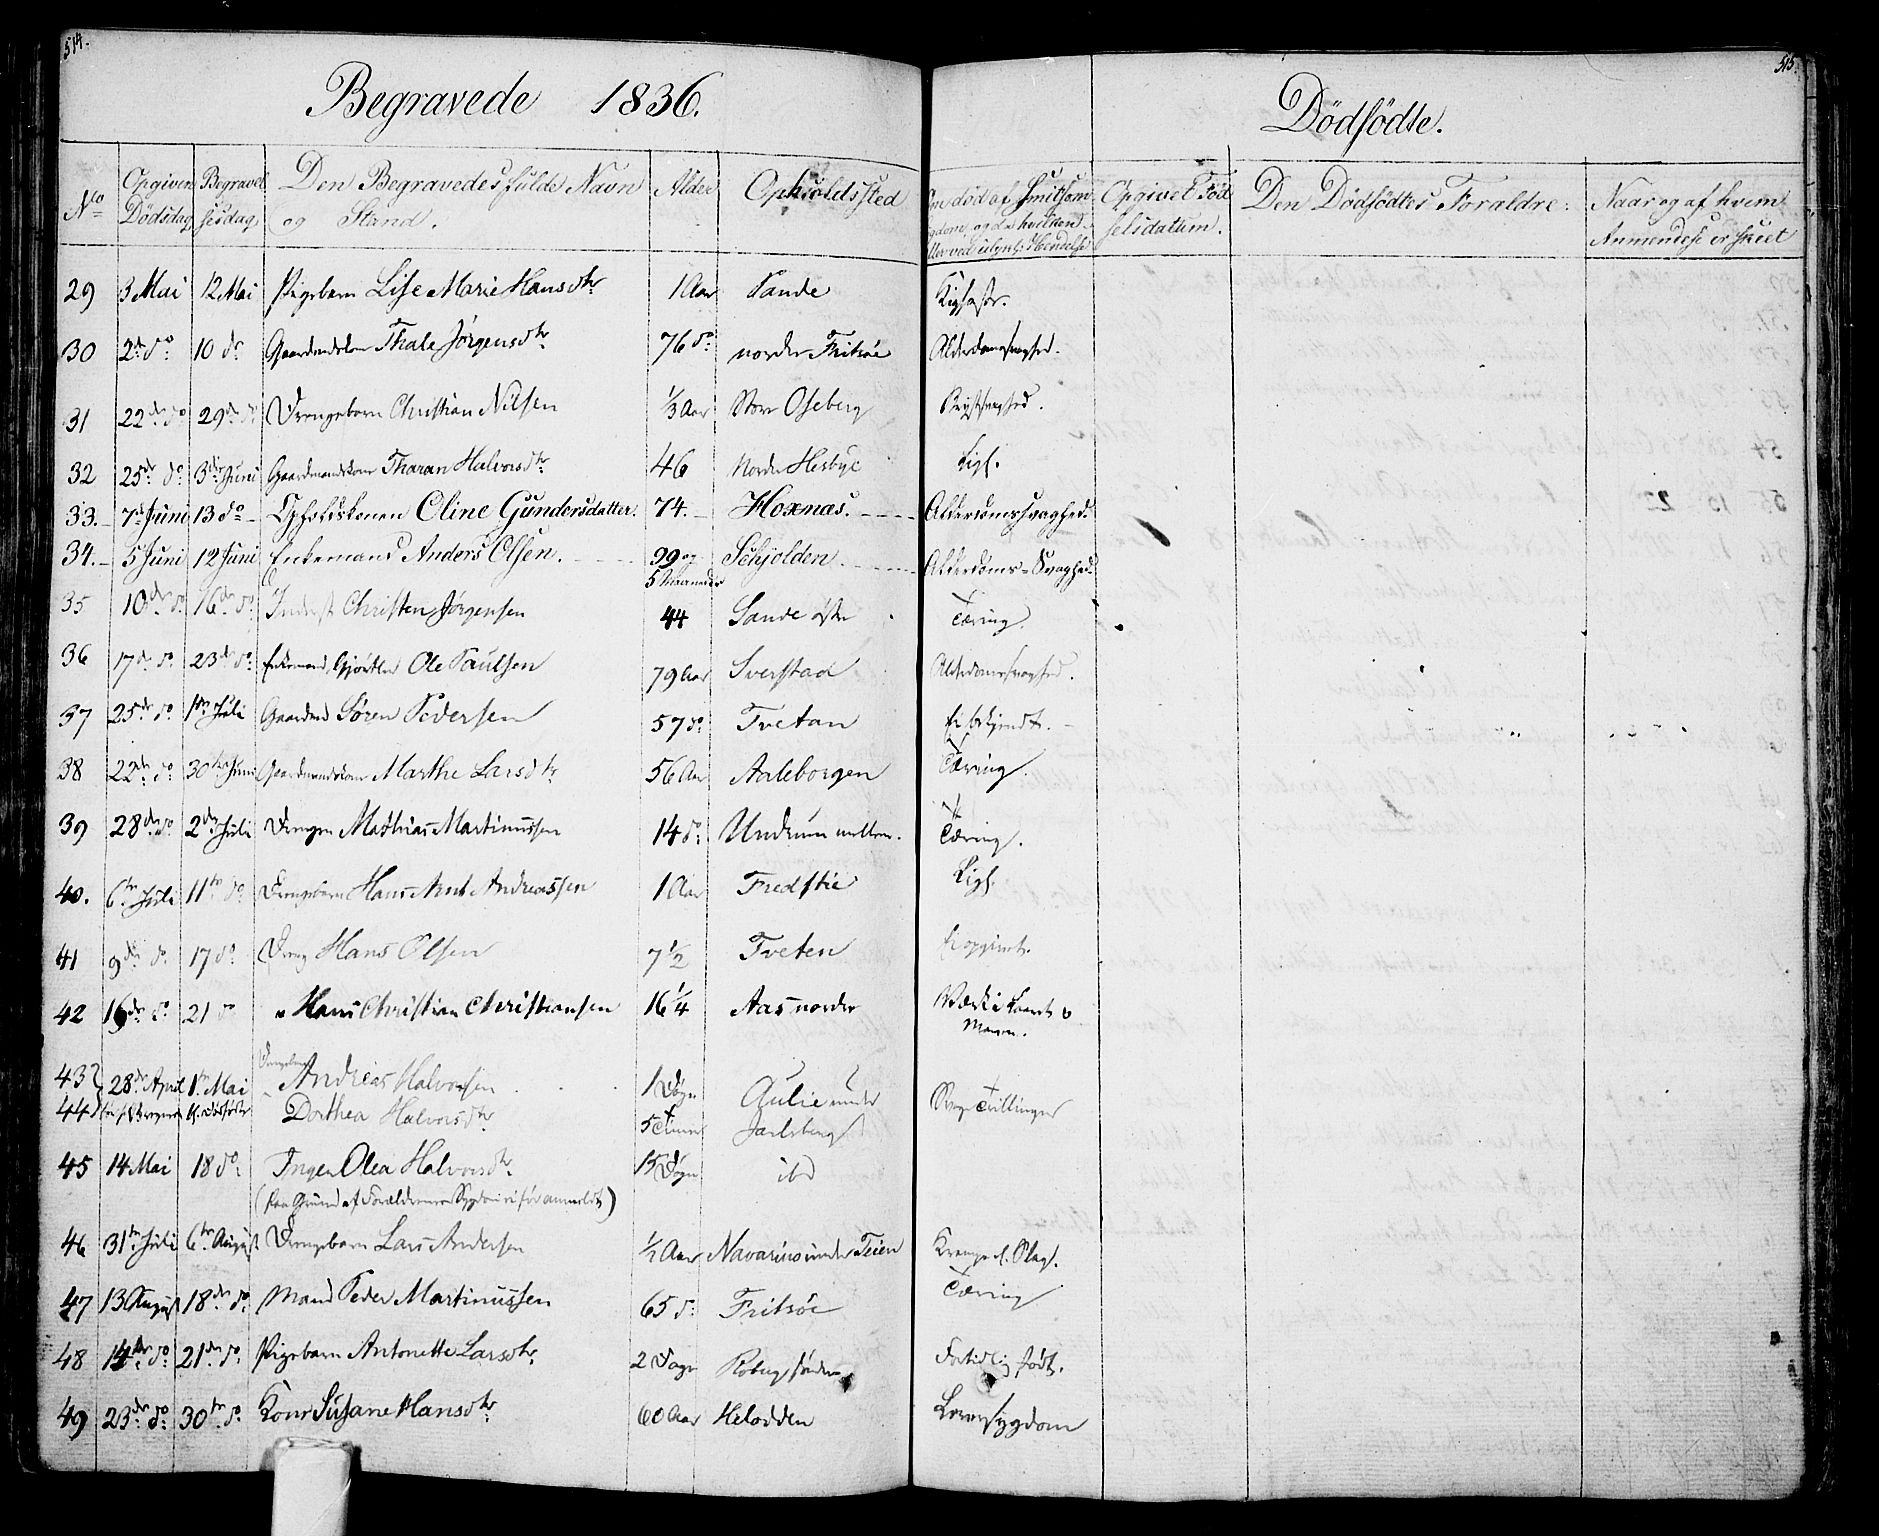 514.
515.
Begravede 1836.
Dödfödte.
No Opgiven Dödsdag Begravelsesdag Den Begravedes fulde Navn og Stand. Alder Opholdssted
Om död af Smitsom Sygdom, og da hvilken Eller ved ulykl: Hændelse Opgivet Fødselsdatum. Den Dödfödtes Foraldre: Naar og af hvem Anmendese er skeet
29 3 Mai 12 Mai Pigebarn Lise Marie Hansdtr 1 Aar Sande
30 2 do 10 do Gaardmandskone Thale Jørgensdtr 76 do norder Fritsöe Alderdomssvaghed.
31 22de do 29de do Drengebarn Christian Nilsen 1/3 Aar Store Oseberg Brystsvaghed.
32 25de do 3die Juni Gaardmandskone Tharan Halvorsdtr 46 Nordr Hesbye Ligs.
33. 7de Juni 13 do Opholdskonen Oline Gundersdatter. 74. Hoxnæs. Alderdomssvaghed.
34. 5 Juni 12 Juni Enkemand Anders Olsen. 99 og 5 Maaneder Schjolden. Alderdoms-Svaghed.
35 10de do 16de do Inderst Christen Jørgensen 44 Sande østre Tæring.
36 17de do 23de do Enkemand Gjørtler Ole Paulsen 79 Aar Sverstad Alderdomssvaghed.
37 25de do 1ste Juli Gaardmd Sören Pedersen 57 do Tvetan Ei bekjendt.
38 22de do 30te Juni Gaardmandskone Marthe Larsdtr 56 Aar Aaleborgen Tæring.
39 28de do 2den Juli Drengen Mathias Martinussen 14 do Undrum mellem. Tæring.
40. 6te Juli 11te do Drengebarn Hans Arnt Andreassen 1 Aar Fredstie Ligs.
41 9de do 17 do Dreng Hans Olsen 7 1/2 Tveten Ei opgivet.
42 16de do 21 do " Hans Christian Christiansen 16 1/4 Aas nordre Værk i Laaret
43 28de April 1ste Mai Drengebarn Andreas Halvorsen 1 Døgn Aulie under
44 Dorthea Halvorsdtr 5 Timer Jarlsberg Svage Tvillinger
45 14 Mai 18 do Inger Olea Halvorsdtr 15 Døgn ibd
(paa Grund af Forældrenes Sygdom ei før anmeldt)
46 31te Juli 6te August Drengebarn Lars Andersen 1/2 Aar Navarino under Teien Krampe el. Slag.
47 13 August 18de do Mand Peder Martinussen 65 do Fritsöe Tæring
48 14de do 21de do Pigebarn Antonette Larsdtr 2 Døgn Roberg søndre Fortidlig født.
49 23de do 30te do Kone Susane Hansdtr 60 Aar Helodden